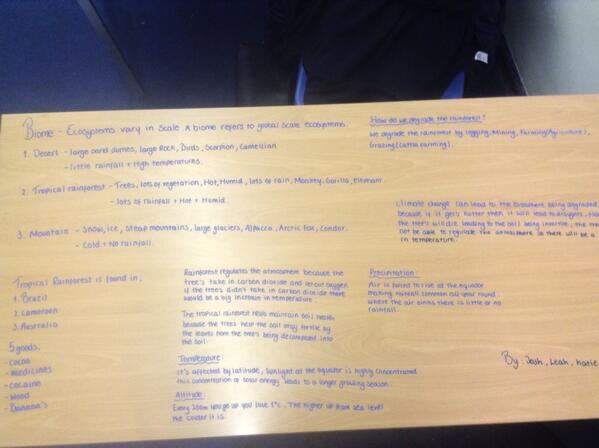 Biome - Ecosystems vary in scale. A biome refers to global scale ecosystems.
1. Desert - large sand dunes, large Rock, Birds, Scorpion,
- little rainfall + High temperatures.
2. Tropical rainforest - Trees, lots of vegetation, Hot, Humid, lots of rain, Monkey, Gorilla,
- lots of rainfall + Hot + Humid.
3. Mountain - Snow, ice, Steap mountains, large glaciers, Alpacca, Arctic fox, Condor.
- Cold + No rainfall.
How do we degrade the rainforest?
We degrade the rainforest by logging, Mining, Farming (Agriculture),
Grazing (Cattle farming).
Climate change can lead to the being degraded
because if it gets hotter then it will lead to droughts,
the tree's will die leading to the soil being infertile, the
not be able to regulate the atmosphere so there will be a
in temperature.
Tropical Rainforest is found in;
1. Brazil
2. Cameroon
3. Australia
5 goods,
- cocoa
- Medicines
- cocaine
- wood
- Banana's
Rainforest regulates the atmosphere because the
tree's take in carbon dioxide and let out oxygen
if the trees didn't take in carbon dioxide there
would be a big increase in temperature.
The tropical rainforest helps maintain soil health
because the trees help the soil stay fertile by
the leaves from the trees being decomposed into
the soil.
Temperature:
It's affected by latitude, Sunlight at the equator is highly concentrated
this concentration of solar energy leads to a longer growing season.
Altitude:
Every 100m you go up you lose 1°c. The higher up from sea level
the colder it is.
Precipitation:
Air is found to rise at the equator
making rainfall common all year round.
Where the air sinks there is little or no
rainfall.
By: Josh, Leah, Katie